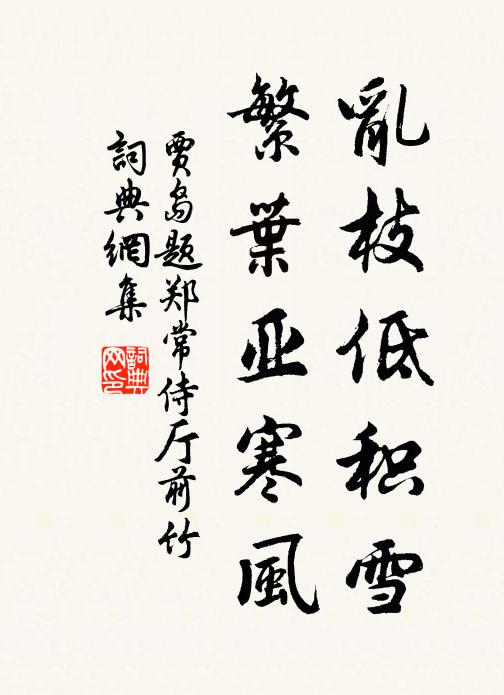 亂枝低积雪
繁葉亚寒風
賈島题郑常侍厅前竹
詞典網集
詞典网印